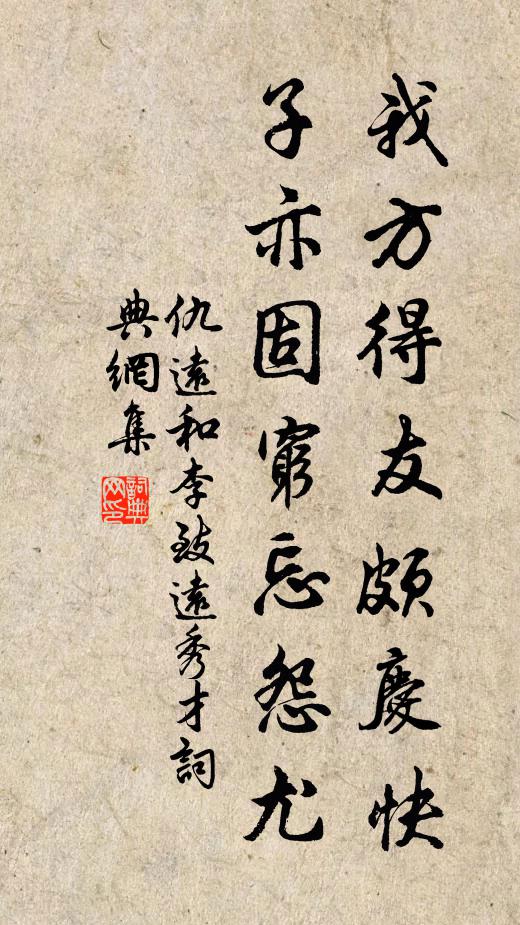 我方得友頗慶快
子亦固窮忘怨尤
仇遠和李致遠秀才詞
典網集
詞典
网印